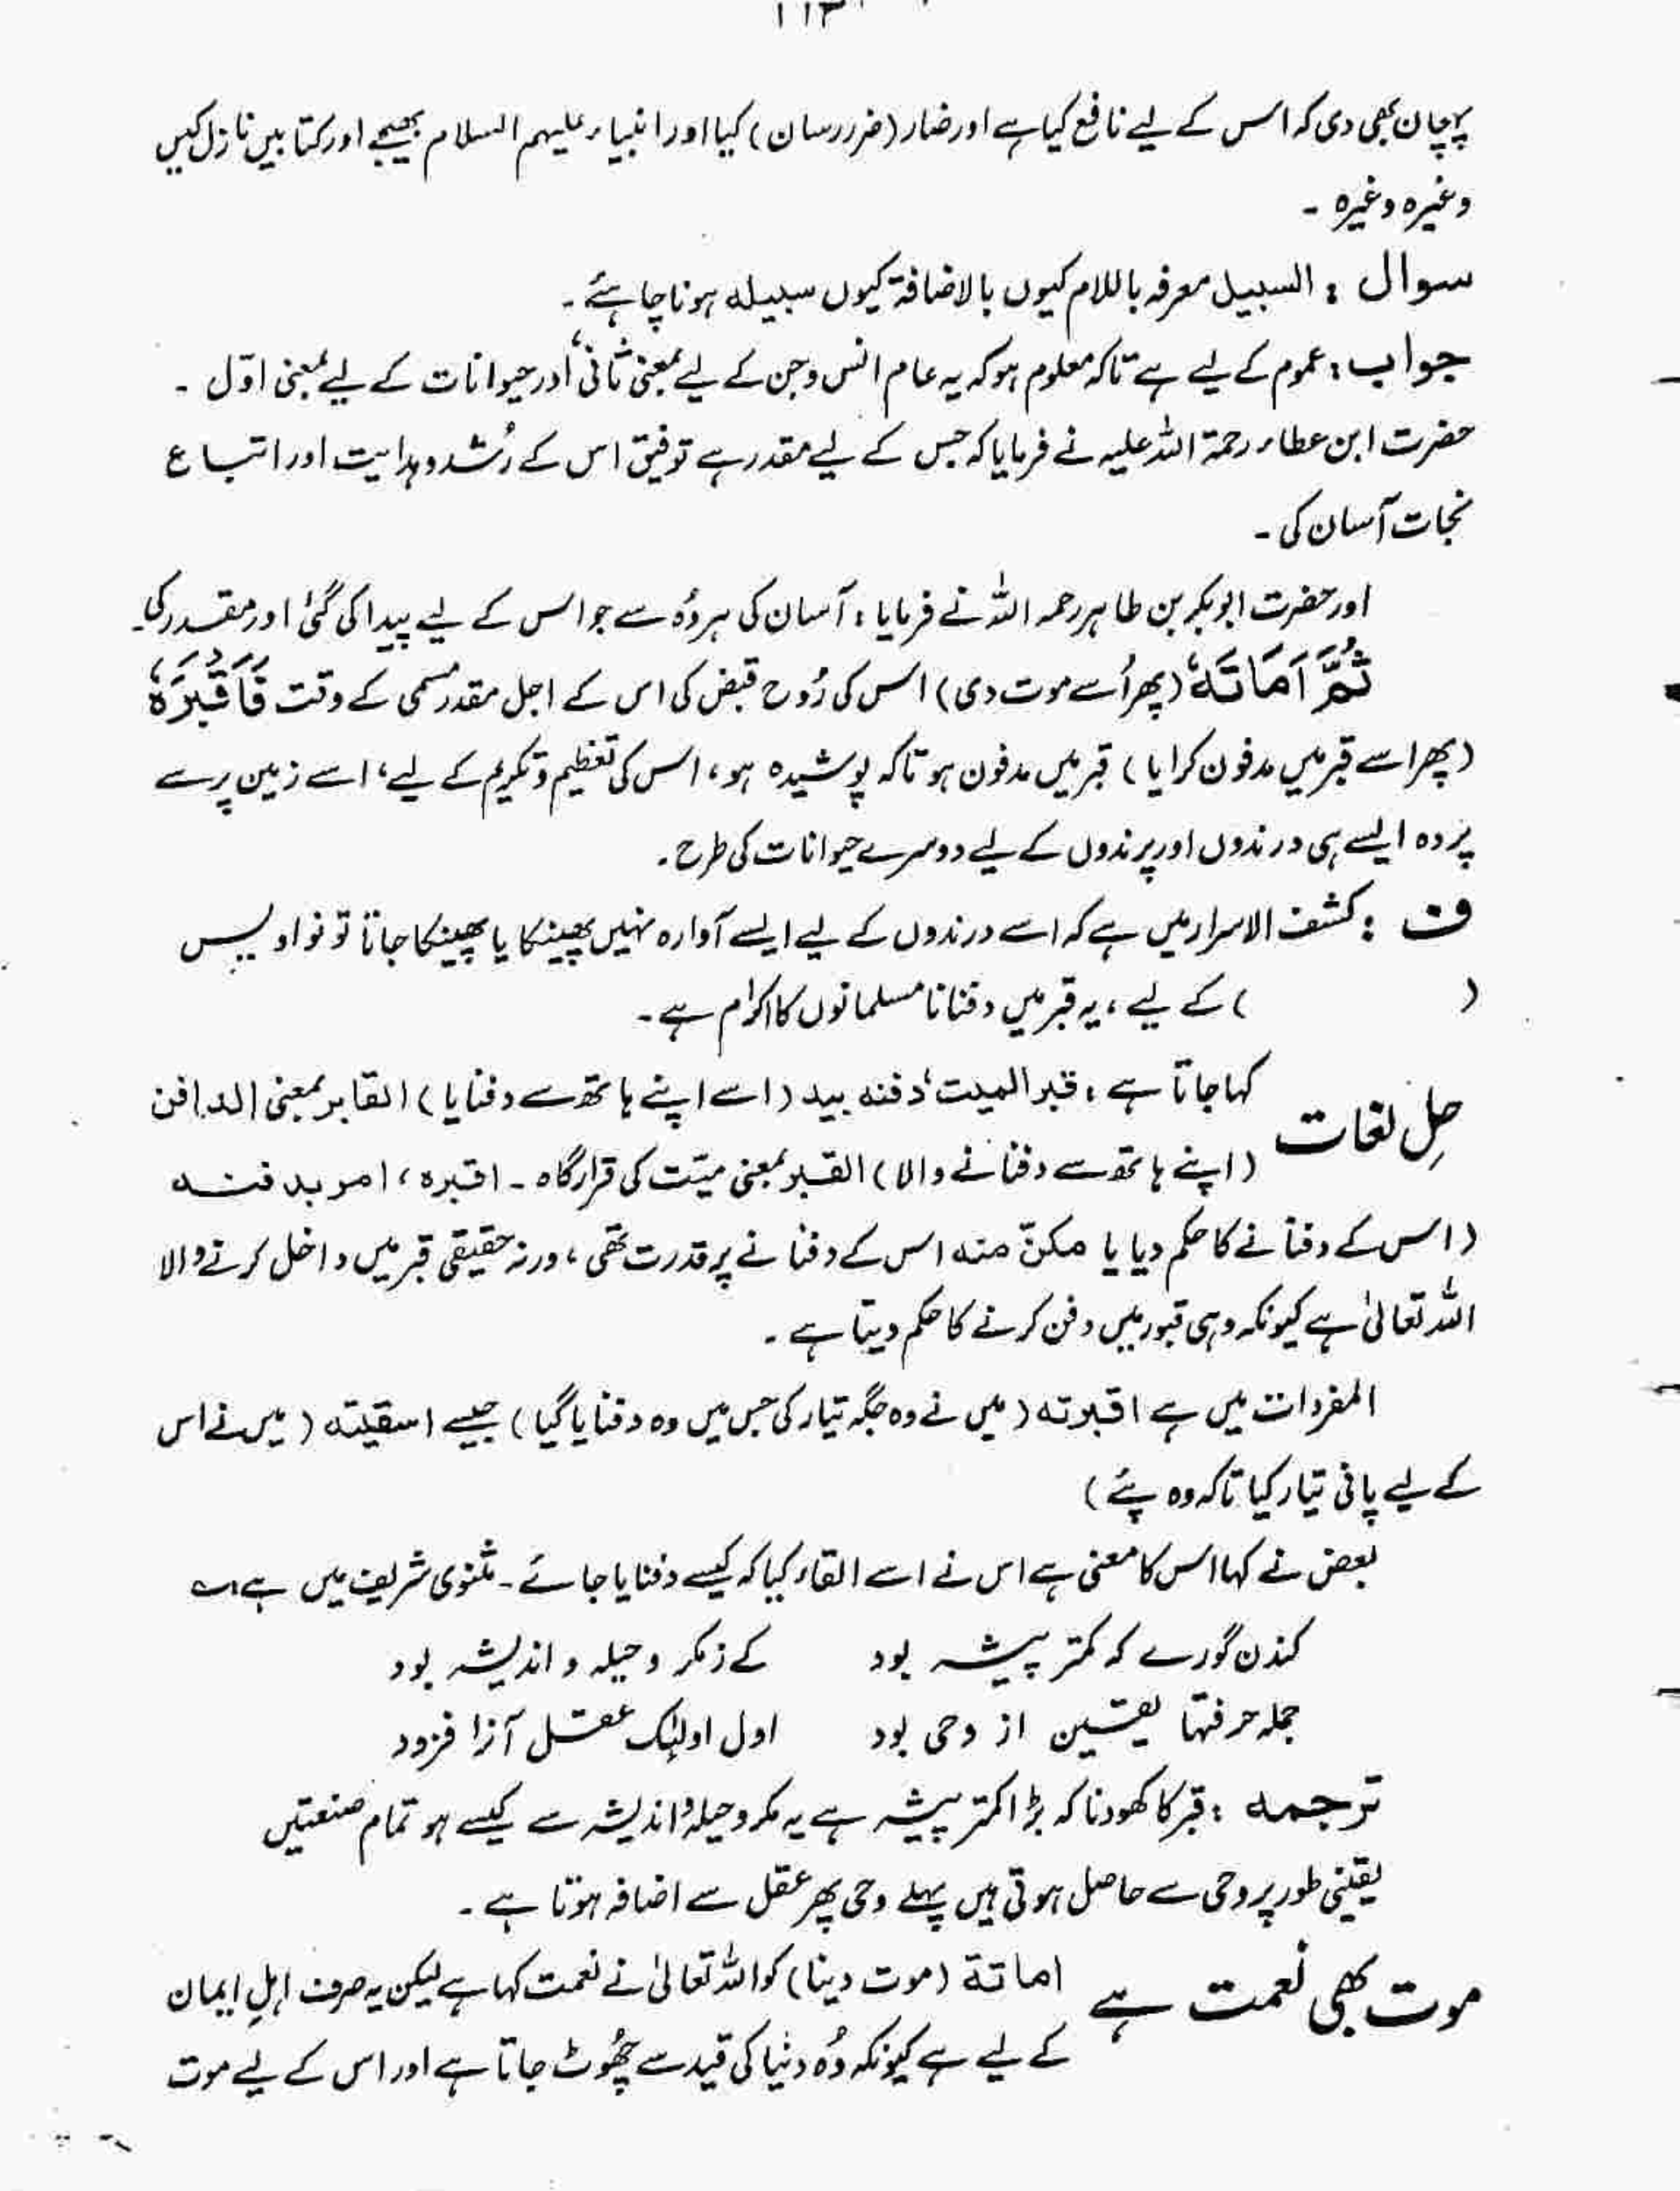 ۱۱۳
پہچان بھی دی کہ اس کے لیے نافع کیا ہے اور ضار (ضرر رساں) کیا اور انبیاء علیہم السلام بھیجے اور کتابیں نازل کیں
وغیرہ وغیرہ ۔
سوال : السبیل معرفہ باللام کیوں بالاضافۃ کیوں سبیلہ ہونا چاہئے ۔
جواب : عموم کے لیے ہے تاکہ معلوم ہو کہ یہ عام انس و جن کے لیے بمعنی ثانی اور حیوانات کے لیے بمعنی اوّل ۔
حضرت ابن عطاء رحمۃ اللہ علیہ نے فرمایا کہ جس کے لیے مقدر ہے توفیق اس کے رُشد و ہدایت اور اتباع
نجات آسان کی ۔
اور حضرت ابوبکر بن طاہر رحمہ اللہ نے فرمایا : آسان کی ہر وُہ سے جو اس کے لیے پیدا کی گئی اور مقدر کی۔
ثُمَّ اَمَاتَهٗ (پھر اُسے موت دی) اس کی رُوح قبض کی اس کے اجل مقدر مسمی کے وقت فَاَقْبَرَهٗ
(پھر اسے قبر میں مدفون کرایا) قبر میں مدفون ہو تاکہ پوشیدہ ہو، اس کی تعظیم و تکریم کے لیے، اسے زمین پر سے
پردہ ایسے ہی درندوں اور پرندوں کے لیے دوسرے حیوانات کی طرح ۔
ف : کشف الاسرار میں ہے کہ اسے درندوں کے لیے ایسے آوارہ نہیں پھینکا یا پھینکا جاتا تو نواویس
( ) کے لیے ، یہ قبر میں دفنانا مسلمانوں کا اکرام ہے ۔
حلِ لغات کہا جاتا ہے : قبر المیت دفنہ بید (اسے اپنے ہاتھ سے دفنایا) القابر بمعنی الدافن
(اپنے ہاتھ سے دفنانے والا) القبر بمعنی میّت کی قرارگاہ ۔ اقبرہ ، امر بدفنہ
(اس کے دفنانے کا حکم دیا یا مکنّ منہ اس کے دفنانے پر قدرت تھی ، ورنہ حقیقی قبر میں داخل کرنے والا
اللہ تعالیٰ ہے کیونکہ وہی قبور میں دفن کرنے کا حکم دیتا ہے ۔
المفردات میں ہے اقبرتہ (میں نے وہ جگہ تیار کی جس میں وہ دفنایا گیا) جیسے اسقیتہ (میں نے اس
کے لیے پانی تیار کیا تاکہ وہ پئے)
بعض نے کہا اس کا معنی ہے اس نے اسے القاء کیا کہ کیسے دفنایا جائے ۔ مثنوی شریف میں ہے ؎
کندن گورے کہ کمتر پیشہ بود کے ز مکر و حیلہ و اندیشہ بود
جملہ حرفتہا یقیں از وحی بود اول اولیک عقل آزا فزود
ترجمہ : قبر کا کھودنا کہ بڑا کمتر پیشہ ہے یہ مکر و حیلہ و اندیشہ سے کیسے ہو تمام صنعتیں
یقینی طور پر وحی سے حاصل ہوتی ہیں پہلے وحی پھر عقل سے اضافہ ہوتا ہے ۔
موت بھی نعمت ہے اماتة (موت دینا) کو اللہ تعالیٰ نے نعمت کہا ہے لیکن یہ صرف اہلِ ایمان
کے لیے ہے کیونکہ وُہ دنیا کی قید سے چھُوٹ جاتا ہے اور اس کے لیے موت